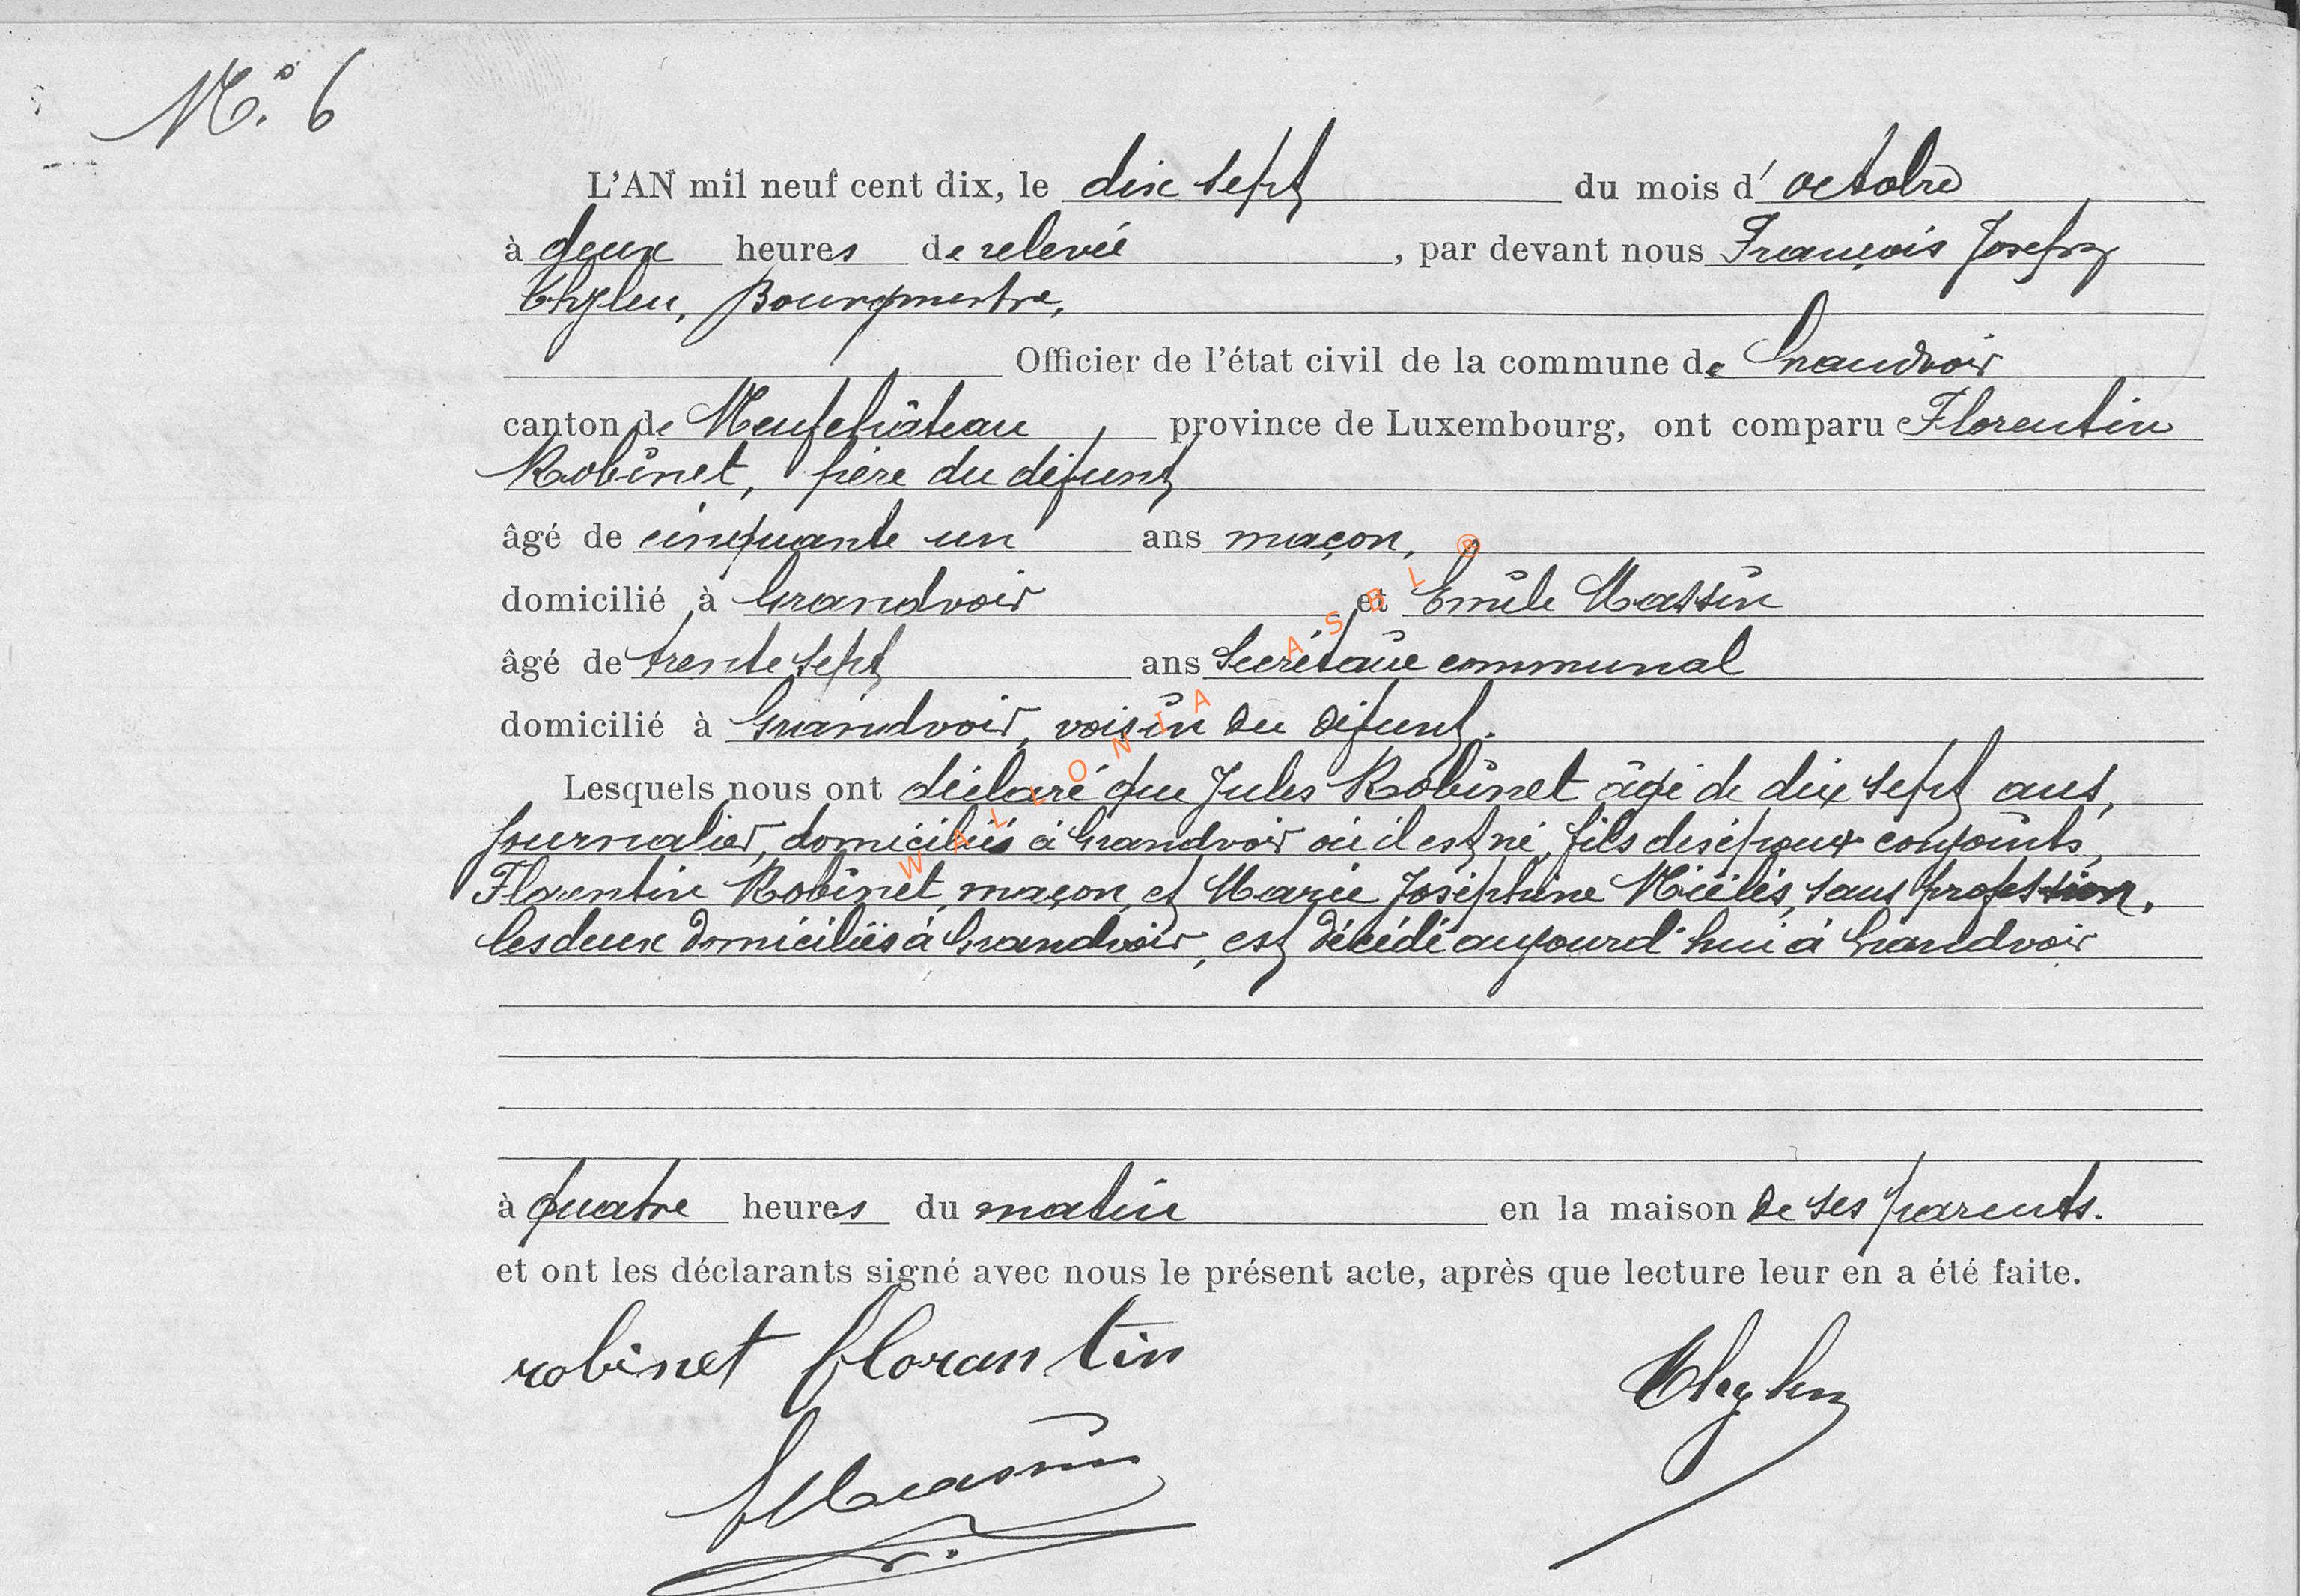 N° 6
L'AN mil neuf cent dix, le dix sept du mois d'octobre
à deux heures de relevée, par devant nous François Joseph
Bourgmestre,
Officier de l'état civil de la commune de Grandvoir
canton de Neufchâteau, province de Luxembourg, ont comparu Florentin
Robinet, père du défunt
âgé de cinquante un ans maçon,
domicilié à Grandvoir et Emile Massin
âgé de trente sept ans Secrétaire communal
domicilié à Grandvoir, voisin du défunt.
Lesquels nous ont déclaré que Jules Robinet âgé de dix sept ans,
journalier, domiciliés à Grandvoir où il est né, fils des époux conjoints,
Florentin Robinet, maçon, et Marie Joséphine sans profession,
les deux domiciliés à Grandvoir, est décédé aujourd'hui à Grandvoir
à quatre heures du matin en la maison de ses parents.
et ont les déclarants signé avec nous le présent acte, après que lecture leur en a été faite.
robinet florantin
EMassin
WALLONIA ASBL ®